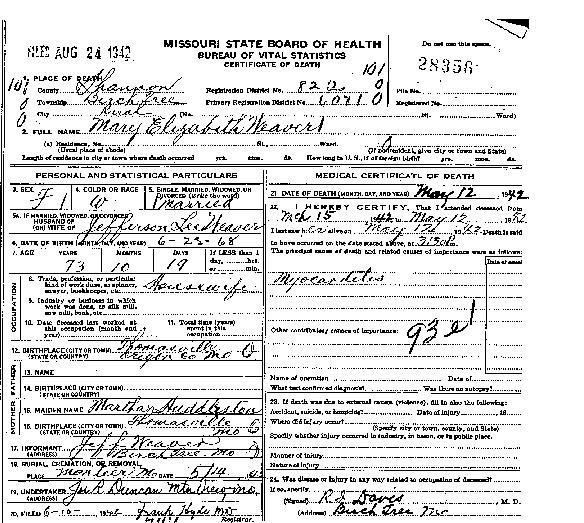 FILED AUG 24 1942
MISSOURI STATE BOARD OF HEALTH
BUREAU OF VITAL STATISTICS
CERTIFICATE OF DEATH
Do not use this space.
28356
101
1. PLACE OF DEATH
County Shannon
Registration District No. 822
File No.
Township Birch Tree
Primary Registration District No. 6071
Registered No.
City Rural (No. St. Ward)
2. FULL NAME Mary Elizabeth Weaver
(a) Residence, No. St. Ward.
(Usual place of abode)
(If nonresident, give city or town and State)
Length of residence in city or town where death occurred yrs. mos. ds. How long in U. S., if of foreign birth? yrs. mos. ds.
PERSONAL AND STATISTICAL PARTICULARS
3. SEX F
4. COLOR OR RACE W
5. SINGLE, MARRIED, WIDOWED, OR DIVORCED (write the word) Married
5a. IF MARRIED, WIDOWED, OR DIVORCED
HUSBAND OF
(OR) WIFE OF Jefferson Lee Weaver
6. DATE OF BIRTH (MONTH, DAY, AND YEAR) 6-23-68
7. AGE YEARS MONTHS DAYS If LESS than 1
day, hrs.
or min.
73 10 19
OCCUPATION
8. Trade, profession, or particular
kind of work done, as spinner,
sawyer, bookkeeper, etc. Housewife
9. Industry or business in which
work was done, as silk mill,
saw mill, bank, etc.
10. Date deceased last worked at
this occupation (month and
year)
11. Total time (years)
spent in this
occupation
12. BIRTHPLACE (CITY OR TOWN) Thomasville
(STATE OR COUNTRY) Oregon Co Mo
FATHER
13. NAME
14. BIRTHPLACE (CITY OR TOWN)
(STATE OR COUNTRY)
MOTHER
15. MAIDEN NAME Martha Huddleston
16. BIRTHPLACE (CITY OR TOWN) Thomasville
(STATE OR COUNTRY) Mo
17. INFORMANT Jeff L Weaver
(ADDRESS) Birch Tree Mo
18. BURIAL, CREMATION, OR REMOVAL
PLACE Mo DATE 5/14
19. UNDERTAKER Duncan Mtn View Mo.
(ADDRESS)
20. FILED 6-10- 1942 Frank Hyde MD
Registrar.
MEDICAL CERTIFICATE OF DEATH
21. DATE OF DEATH (MONTH, DAY, AND YEAR) May 12 1942
22. I HEREBY CERTIFY, That I attended deceased from
Mch 15 1942 to May 12 1942
I last saw h er alive on May 12 1942 Death is said
to have occurred on the date stated above, at
The principal cause of death and related causes of importance were as follows:
Date of onset
Myocarditis
Other contributory causes of importance:
93e
Name of operation Date of
What test confirmed diagnosis? Was there an autopsy?
23. If death was due to external causes (violence), fill in also the following:
Accident, suicide, or homicide? Date of injury 19
Where did injury occur?
(Specify city or town, county, and State)
Specify whether injury occurred in industry, in home, or in public place.
Manner of injury
Nature of injury
24. Was disease or injury in any way related to occupation of deceased?
If so, specify
(Signed) R S Davis M. D.
(Address) Birch Tree Mo